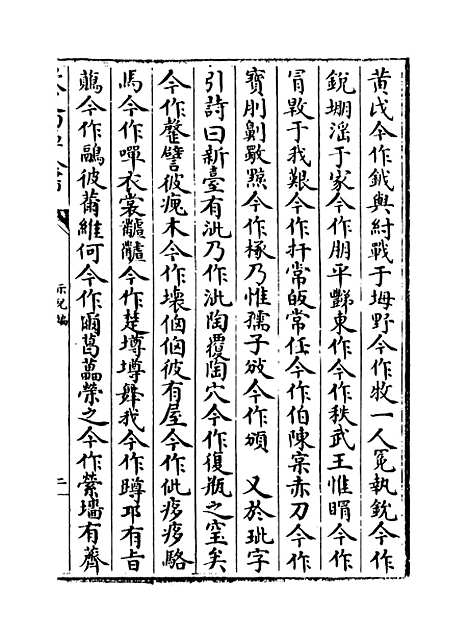 黃戉今作鉞與紂戰于坶野今作牧一人冕執鈗今作
銳堋淫于家今作朋平豑東作今作秩武王惟䀤今作
冒敃于我艱今作扞常㪅常任今作伯陳宷赤刀今作
寶刖劓斀黥今作椓乃惟孺子攽今作頒 又於玼字
引詩曰新臺有泚乃作泚陶覆陶穴今作復瓶之窒矣
今作罄譬彼瘣木今作壞佌佌彼有屋今作佌痑痑駱
馬今作嘽衣裳䵻䵻今作楚壿壿舞我今作蹲邛有旨
鷊今作鷊彼薾維何今作爾葛藟縈之今作縈墻有薺